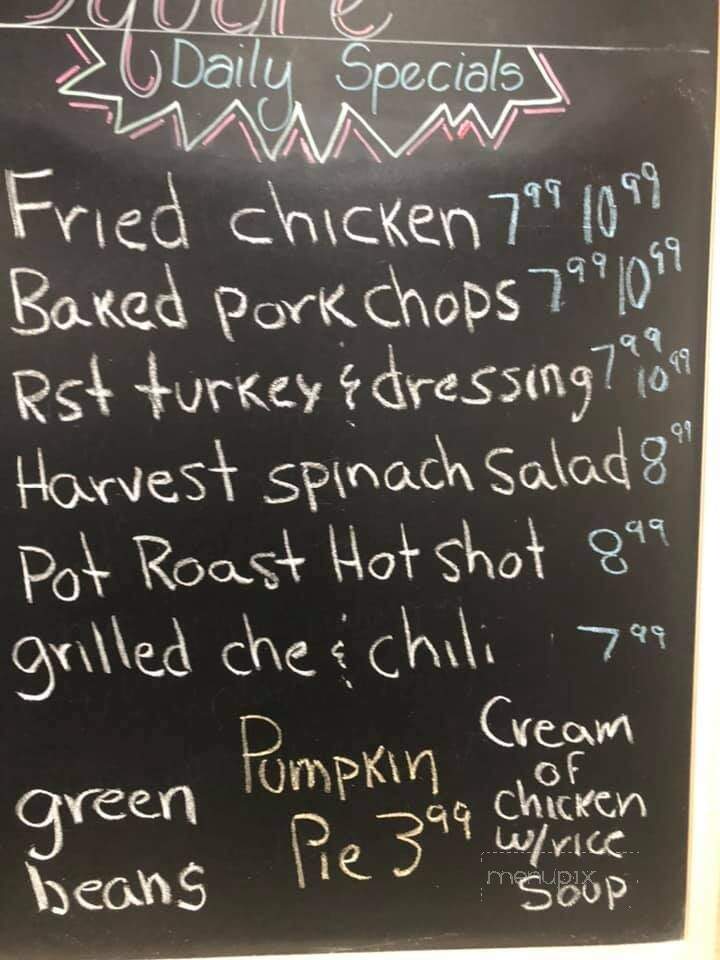 Square
Daily Specials
Fried chicken 7 99 10 99
Baked pork chops 7 99 10 99
Rst turkey & dressing 7 99 10 99
Harvest spinach Salad 8 99
Pot Roast Hot shot 8 99
grilled che & chili 7 99
green
beans
Pumpkin
Pie 3 99
Cream
of
chicken
w/rice
Soup
menupix